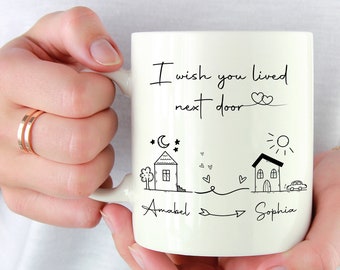 I wish you lived
next door
Amabel Sophia